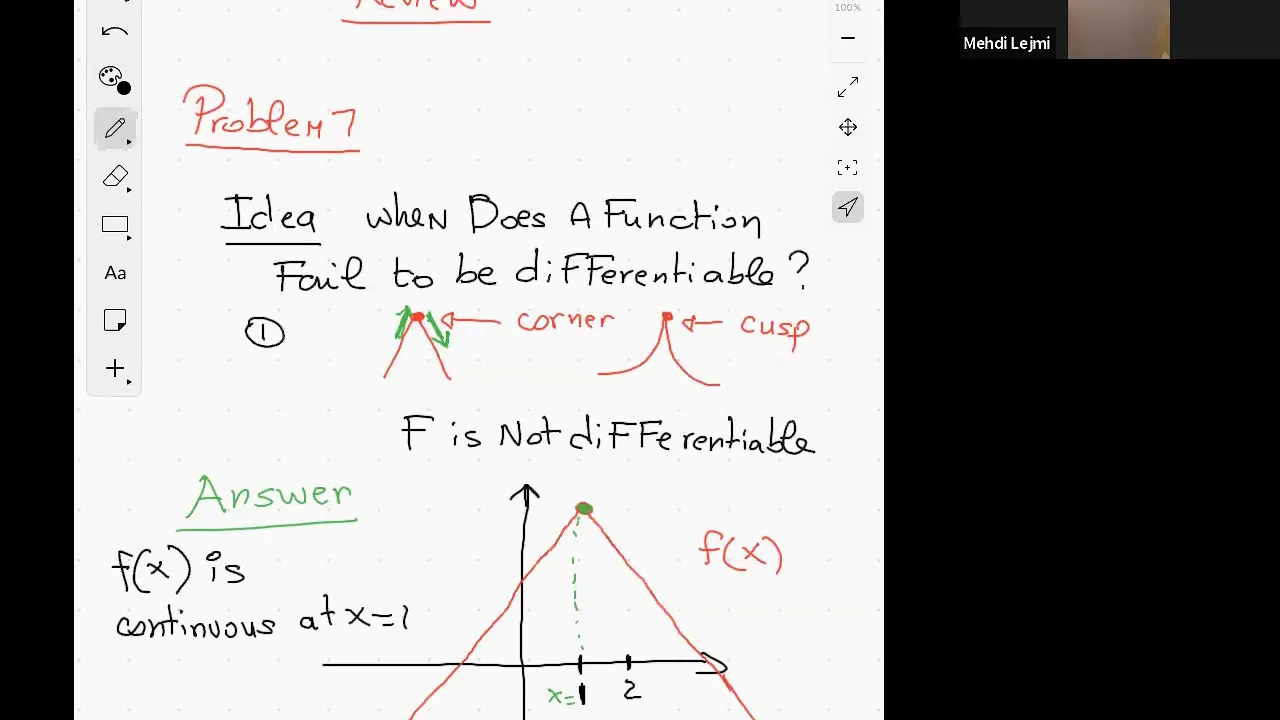 Review
100%
Mehdi Lejmi
Problem 7
Idea when Does A Function
Fail to be differentiable?
① corner cusp
Aa
F is Not differentiable
Answer
f(x)
f(x) is
continuous at x=1
x=1 2